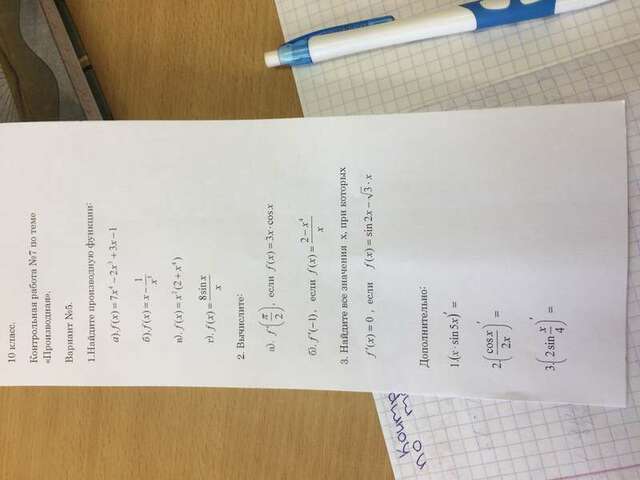 10 класс.
Контрольная работа №7 по теме
«Производная».
Вариант №5.
1.Найдите производную функции:
а).f(x) = 7x⁴ − 2x³ + 3x − 1
б).f(x) = x − 1/x³
в).f(x) = x²(2 + x⁴)
г).f(x) = 8 sin x / x
2. Вычислите:
а). f'(π/2), если f(x) = 3x · cos x
б). f'(−1), если f(x) = (2 − x⁴)/x
3. Найдите все значения x, при которых
f'(x) = 0, если f(x) = sin 2x − √3 · x
Дополнительно:
1.(x · sin 5x)' =
2.(cos x / 2x)' =
3.(2 sin x/4)' =
по